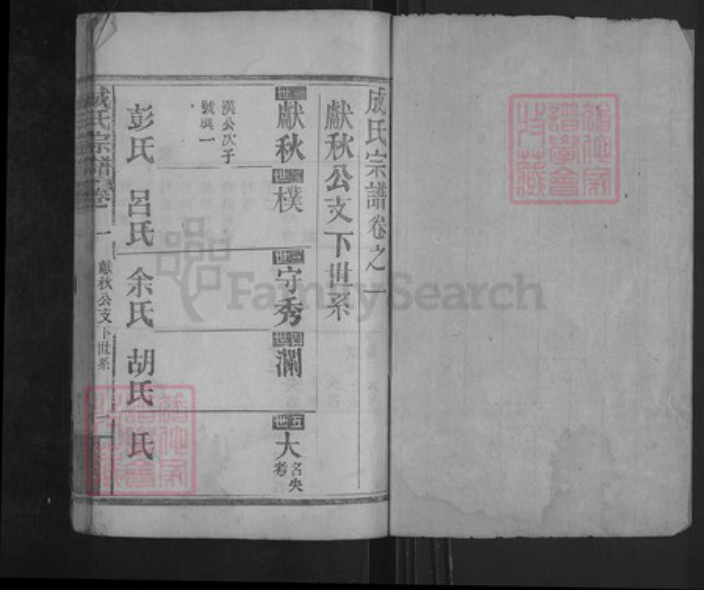 成氏宗譜卷之一
獻秋公支下世系
一世
獻秋
漢公次子
號與一
彭氏
二世
樸
呂氏
三世
守秀
余氏
四世
瀾
胡氏
五世
大
名央
考
氏
成氏宗譜 卷一 獻秋公支下世系 一
FamilySearch